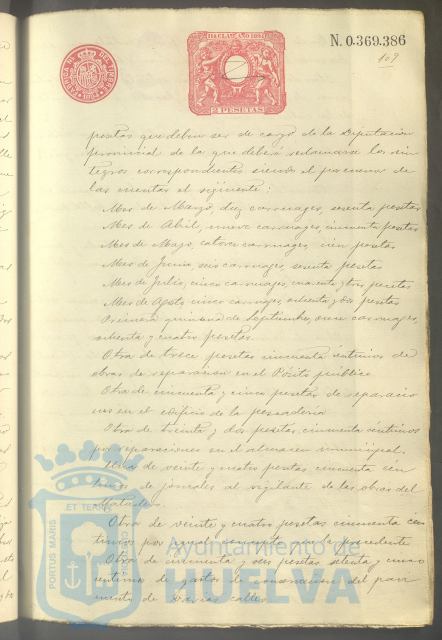 11ª CLASE AÑO 1884
N. 0.369.386
109
2 PESETAS
pesetas que deben ser de cargo de la Diputacion
provincial de la que deberá reclamarse los rein-
tegros correspondientes siendo el pormenor de
las cuentas el siguiente:
Mes de Marzo, diez carruages, sesenta pesetas
Mes de Abril, nueve carruages, cincuenta pesetas
Mes de Mayo, catorce carruages, cien pesetas
Mes de Junio seis carruages, sesenta pesetas
Mes de Julio, cinco carruages, cuarenta y tres pesetas
Mes de Agosto cinco carruages, ochenta y tres pesetas
Primera quincena de Septiembre, once carruages,
ochenta y cuatro pesetas.
Otra de trece pesetas cincuenta céntimos de
obras de reparacion en el Pósito público
Otra de cincuenta y cinco pesetas de reparacio
nes en el edificio de la pescaderia
Otra de treinta y dos pesetas, cincuenta centimos
por reparaciones en el almacen municipal.
Otra de veinte y cuatro pesetas cincuenta cen
timos de jornales al vigilante de las obras del
Matadero.
Otra de veinte y cuatro pesetas cincuenta cen
timos por igual concepto que la precedente
Otra de cincuenta y seis pesetas setenta y cinco
centimos de gastos de conservacion del pavi
mento de varias calles
PORTUS MARIS
ET TERRÆ
Ayuntamiento de
HUELVA